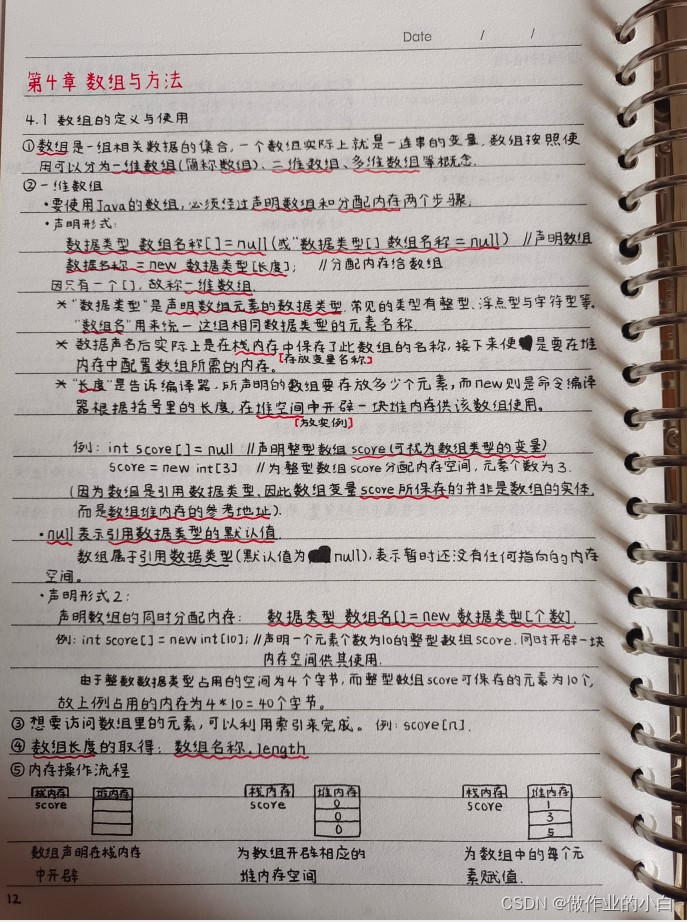 Date / /
第4章 数组与方法
4.1 数组的定义与使用
①数组是一组相关数据的集合,一个数组实际上就是一连串的变量,数组按照使
用可以分为一维数组(简称数组)、二维数组、多维数组等概念.
②一维数组
·要使用Java的数组,必须经过声明数组和分配内存两个步骤.
·声明形式:
数据类型 数组名称[]=null(或"数据类型[] 数组名称=null) //声明数组
数据名称=new 数据类型[长度]; //分配内存给数组
因只有一个[],故称一维数组.
*"数据类型"是声明数组元素的数据类型,常见的类型有整型、浮点型与字符型等.
"数组名"用来统一这组相同数据类型的元素名称.
* 数据声名后实际上是在栈内存中保存了此数组的名称,接下来便是要在堆
[存放变量名称]
内存中配置数组所需的内存。
*"长度"是告诉编译器,所声明的数组要存放多少个元素,而new则是命令编译
器根据括号里的长度,在堆空间中开辟一块堆内存供该数组使用。
[放实例]
例: int score[]=null //声明整型数组score(可视为数组类型的变量)
score=new int[3] //为整型数组score分配内存空间,元素个数为3.
(因为数组是引用数据类型,因此数组变量score所保存的并非是数组的实体,
而是数组堆内存的参考地址).
·null表示引用数据类型的默认值.
数组属于引用数据类型(默认值为null),表示暂时还没有任何指向的内存
空间。
·声明形式2:
声明数组的同时分配内存: 数据类型 数组名[]=new 数据类型[个数].
例: int score[]=new int[10]; //声明一个元素个数为10的整型数组score.同时开辟一块
内存空间供其使用.
由于整数数据类型占用的空间为4个字节,而整型数组score可保存的元素为10个,
故上例占用的内存为4*10=40个字节。
③ 想要访问数组里的元素,可以利用索引来完成。 例: score[n].
④ 数组长度的取得: 数组名称.length
⑤内存操作流程
栈内存 堆内存 栈内存 堆内存 栈内存 堆内存
score score 0 score 1
0 3
0 5
数组声明在栈内存 为数组开辟相应的 为数组中的每个元
中开辟 堆内存空间 素赋值.
12
CSDN @做作业的小白